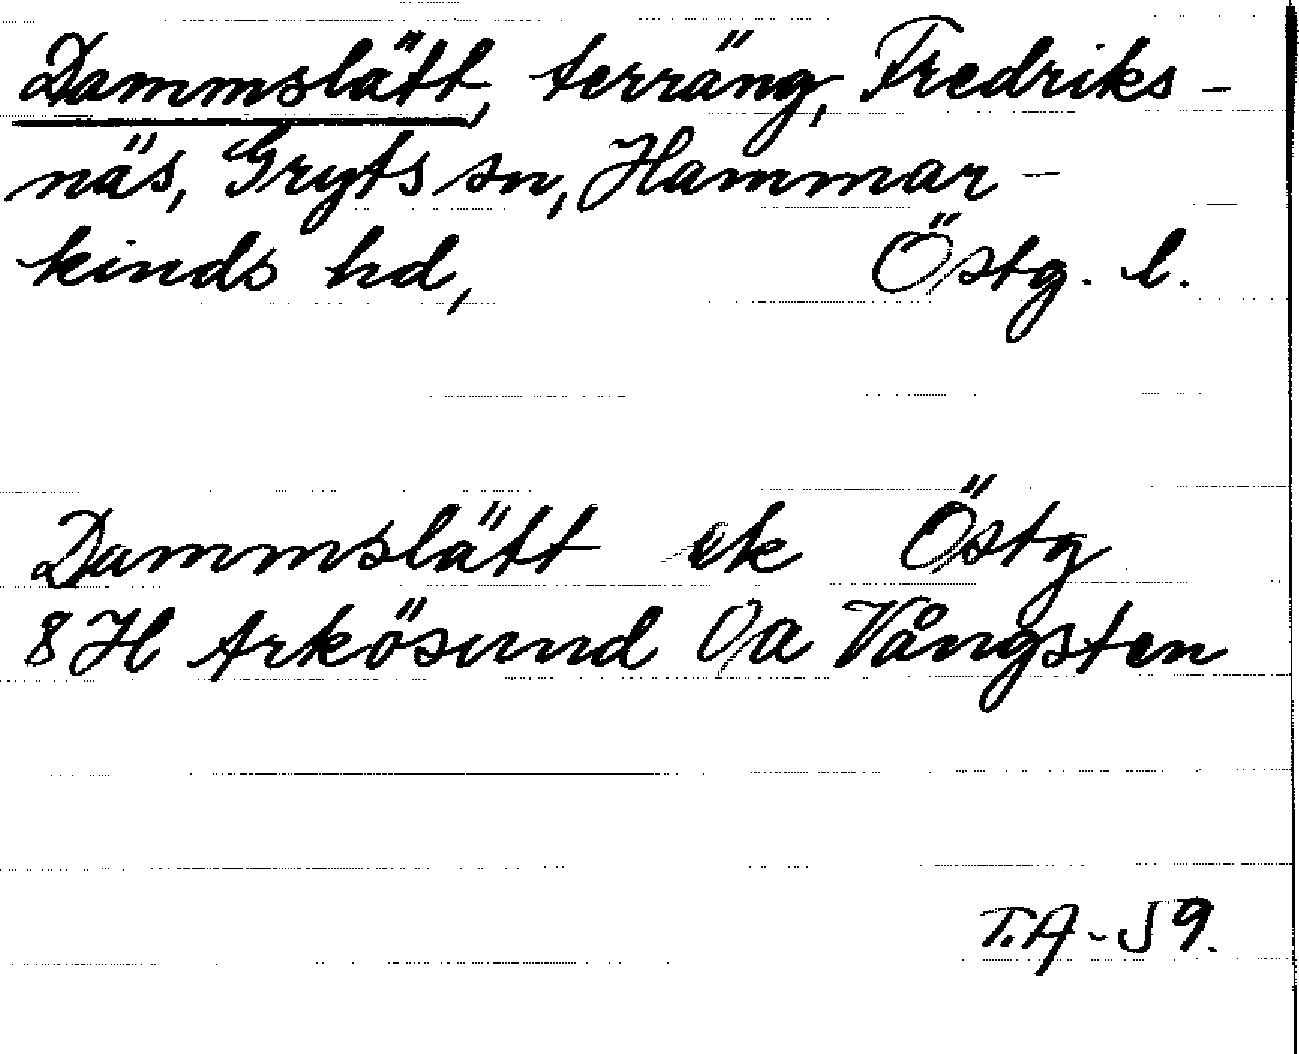 Dammslätt, terräng, Fredriks-
näs, Gryts sn, Hammar-
kinds hd, Östg. l.
Dammslätt ek Östg
8H Arkösund 0a Vångsten
T.A-59.